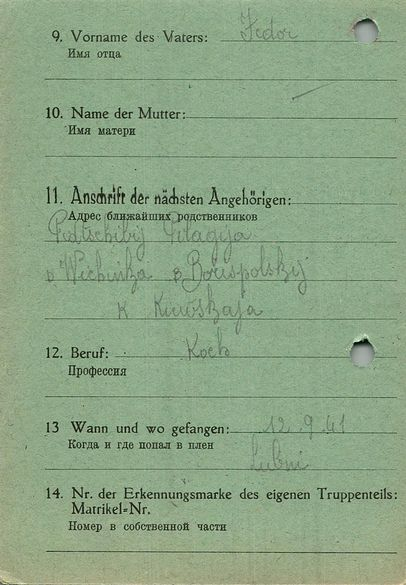 9. Vorname des Vaters: Fedor
Имя отца
10. Name der Mutter:
Имя матери
11. Anschrift der nächsten Angehörigen:
Адрес ближайших родственников
Pelagija
Boruspolskij
K Kiewskaja
12. Beruf: Koch
Профессия
13 Wann und wo gefangen: 12.9.41
Когда и где попал в плен
Lubni
14. Nr. der Erkennungsmarke des eigenen Truppenteils:
Matrikel-Nr.
Номер в собственной части